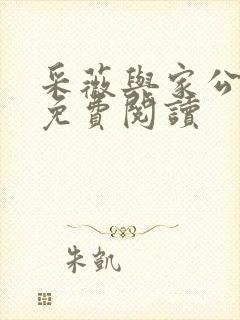 采薇與家公
免費閱讀
朱凱